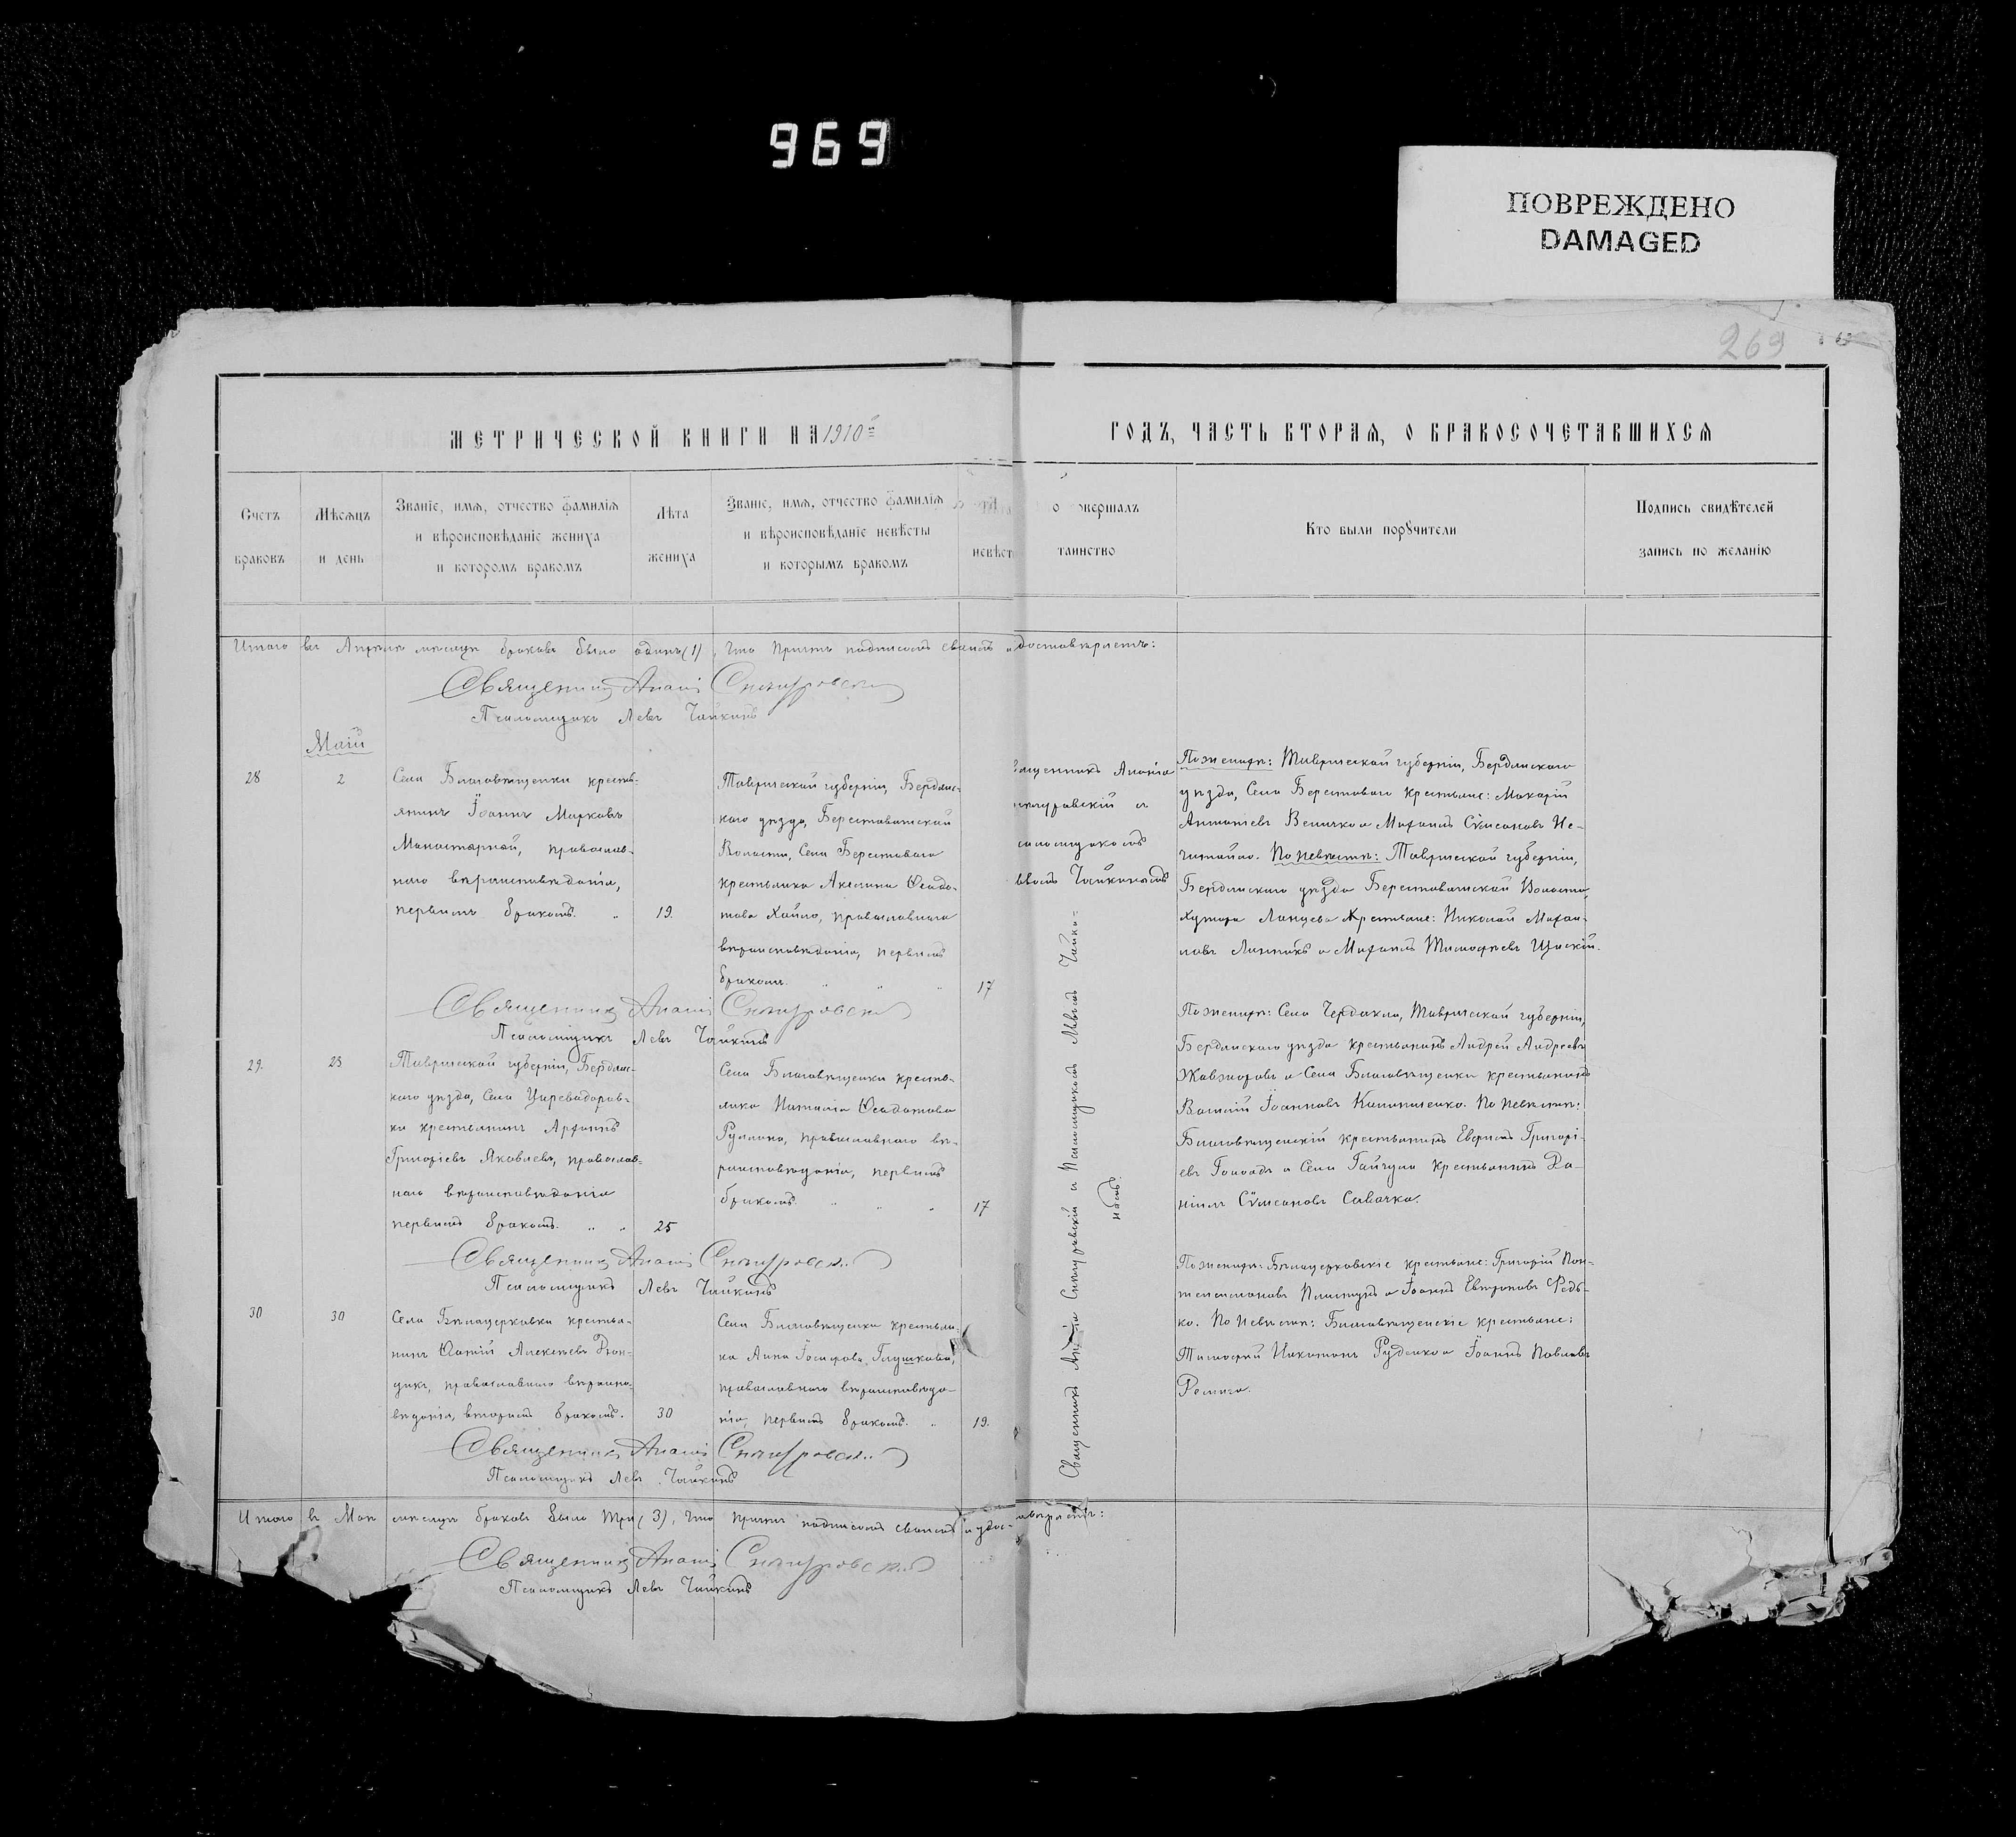 969
ПОВРЕЖДЕНО
DAMAGED
269
МЕТРИЧЕСКОЙ КНИГИ НА 1910й
ГОДЪ, ЧАСТЬ ВТОРАЯ, О БРАКОСОЧЕТАВШИХСЯ
Счетъ
браковъ
Мѣсяцъ
и день
Званіе, имя, отчество фамилія
и вѣроисповѣданіе жениха
и которомъ бракомъ
Лѣта
жениха
Званіе, имя, отчество фамилія
и вѣроисповѣданіе невѣсты
и которымъ бракомъ
невѣст
о овершалъ
таинство
Кто были поручители
Подпись свидѣтелей
запись по желанію
Итого въ Апрѣлѣ мѣсяцѣ браковъ было одинъ (1), что причтъ подписомъ своимъ удостовѣряетъ:
Священникъ
Псаломщикъ Левъ Чайкинъ
Май
28
2
Села Благовѣщенки кресть-
янинъ Іоаннъ Марковъ
Монастырный, православ-
наго вѣроисповѣданія,
первымъ бракомъ. „
19.
Таврической губерніи, Бердянс-
каго уѣзда, Берестоватской
Волости, Села Берестоваго
крестьянка Акилина Ѳеодо-
това Хайло, православнаго
вѣроисповѣданія, первымъ
бракомъ. „ „ „
17
вященникъ
и
саломщикомъ
ьвомъ Чайкинымъ
По женихѣ: Таврической губерніи, Бердянскаго
уѣзда, Села Берестоваго крестьяне: Макарій
Антоніевъ Величко и Михаилъ Сѵмеоновъ Не-
читайло. По невѣстѣ: Таврической губерніи,
Бердянскаго уѣзда Берестоватской Волости,
Хутора крестьяне: Николай Михаи-
ловъ и Михаилъ Тимофѣевъ
Священникъ
Псаломщикъ Левъ Чайкинъ
29.
23
Таврической губерніи, Бердянс-
каго уѣзда, Села Царевадаров-
ки крестьянинъ
Григоріевъ Яковлевъ, православ-
наго вѣроисповѣданія
первымъ бракомъ. „ „
25
Села Благовѣщенки кресть-
янка Наталія Ѳеодотова
православнаго вѣ-
роисповѣданія, первымъ
бракомъ. „ „ „
17
По женихѣ: Села Чердакла, Таврической губерніи,
Бердянскаго уѣзда крестьянинъ Андрей Андреевъ
и Села Благовѣщенки крестьянинъ
Василій Іоанновъ По невѣстѣ:
Благовѣщенскій крестьянинъ Григорі-
евъ и Села Гайчула крестьянинъ Да-
ніилъ Сѵмеоновъ Савачка.
Священникъ
Псаломщикъ Левъ Чайкинъ
30
30
Села Бѣлоцерковки крестья-
нинъ Алексѣевъ
православнаго вѣроиспо-
вѣданія, вторымъ бракомъ.
30
Села Благовѣщенки крестьян-
ка Анна Іосифова Глушкова,
православнаго вѣроисповѣда-
нія, первымъ бракомъ. „
19.
По женихѣ: Бѣлоцерковскіе крестьяне: Григорій Пан-
телеимоновъ и Іоаннъ Редь-
ко. По невѣстѣ: Благовѣщенскіе крестьяне:
Тимофей Никитинъ Руденко и Іоаннъ Павловъ
Священникъ и Псаломщикомъ Львомъ Чайки-
нымъ.
Священникъ
Псаломщикъ Левъ Чайкинъ
Итого въ Маѣ мѣсяцѣ браковъ было три (3), что причтъ подписомъ своимъ и удостовѣряетъ:
Священникъ
Псаломщикъ Левъ Чайкинъ